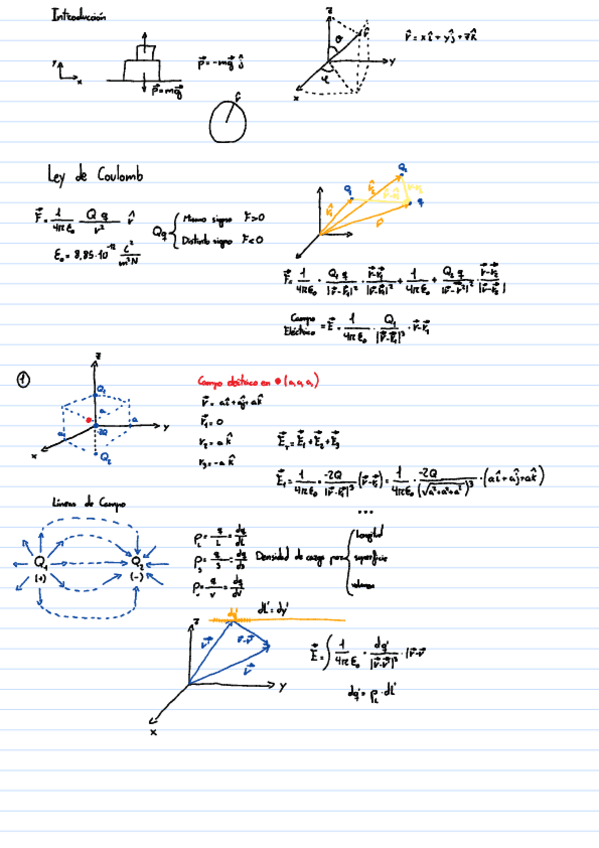 Introducción
z
y
x
p⃗ = -mg⃗ ĵ
p⃗ = mg⃗
θ
φ
r⃗
y
x
r⃗ = xî + yĵ + zk̂
Ley de Coulomb
F⃗ = 1/4πε₀ Q q/r² r̂
Qq { Mismo signo F>0
Distinto signo F<0
ε₀ = 8,85·10⁻¹² C²/m²N
Q₁
q
F⃗ = 1/4πε₀ · Q₁q/|r⃗-r⃗₁|² · r⃗-r⃗₁/|r⃗-r⃗₁|² + 1/4πε₀ + Q₂q/|r⃗-r⃗²|² · r⃗-r⃗₂/|r⃗-r⃗₂|
Campo
Eléctrico = E⃗ = 1/4πε₀ · Q₁/|r⃗-r⃗₁|³ · r⃗-r⃗₁
①
z
Q₁
a
-2Q
y
x
Q₂
Campo eléctrico en • (a, a, a)
r⃗ = aî + aĵ + ak̂
r⃗₁ = 0
r₂ = a k̂
r₃ = -a k̂
E⃗ᵣ = E⃗₁ + E⃗₂ + E⃗₃
E⃗₁ = 1/4πε₀ · -2Q/|r⃗-r⃗₁|³ (r⃗-r⃗₁) = 1/4πε₀ · -2Q/(√a²+a²+a²)³ · (aî + aĵ + ak̂)
...
Líneas de Campo
Q₁
(+)
Q₂
(-)
ρ_L = q/L = dq/dL
ρ_S = q/S = dq/ds
ρ = q/v = dq/dv
Densidad de carga por { longitud
superficie
volumen
dq'
dL' = dy'
z
r⃗'
r⃗-r⃗'
r⃗
y
x
E⃗ = ∫ 1/4πε₀ · dq'/|r⃗-r⃗'|³ · |r⃗-r⃗'
dq' = ρ_L · dL'